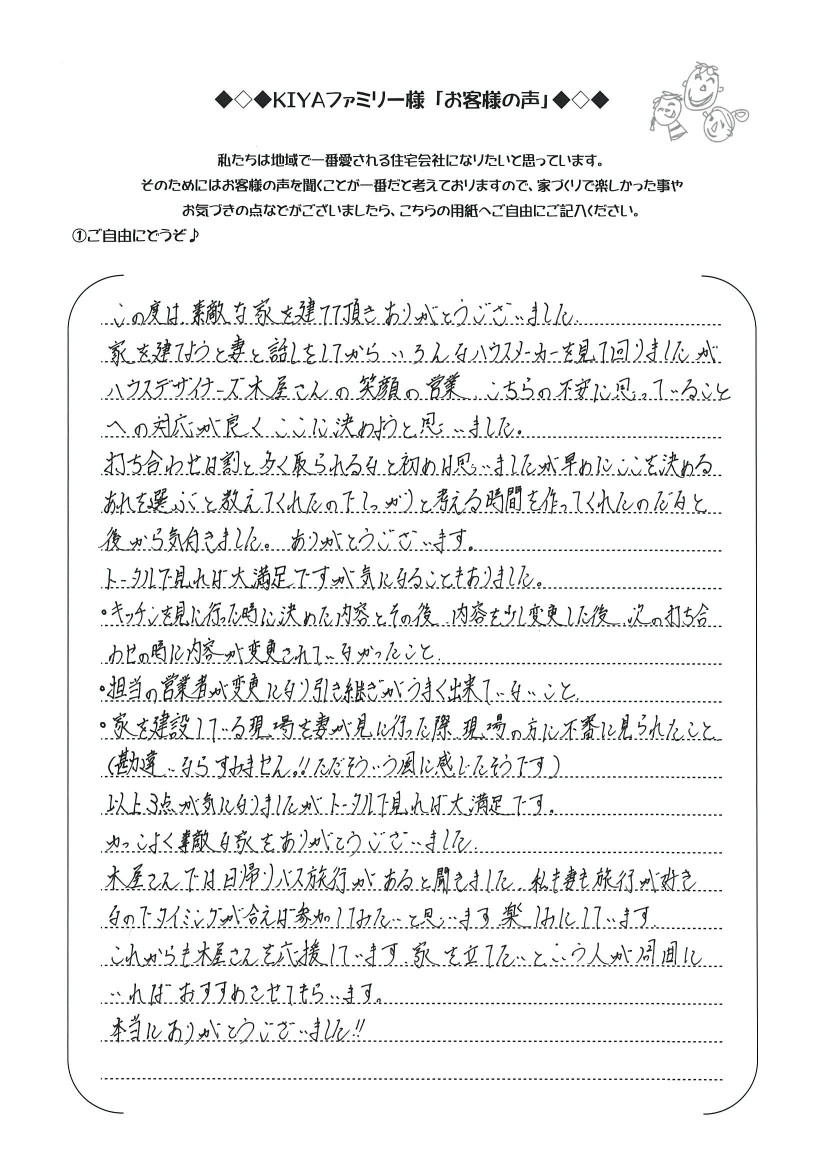 ◆◇◆KIYAファミリー様「お客様の声」◆◇◆
私たちは地域で一番愛される住宅会社になりたいと思っています。
そのためにはお客様の声を聞くことが一番だと考えておりますので、家づくりで楽しかった事や
お気づきの点などがございましたら、こちらの用紙へご自由にご記入ください。
①ご自由にどうぞ♪
この度は素敵な家を建てて頂きありがとうございました。
家を建てようと妻と話しをしてからいろんなハウスメーカーを見て回りましたが
ハウスデザイナーズ木屋さんの笑顔の営業、こちらの不安に思っていること
への対応が良くここに決めようと思いました。
打ち合わせは割と多く取られるなと初めは思いましたが早めにここを決める
あれを選ぶと教えてくれたのでしっかりと考える時間を作ってくれたのだなと
後から気付きました。ありがとうございます。
トータルで見れば大満足ですが気になることもありました。
・キッチンを見に行った時に決めた内容とその後、内容を少し変更した後、次の打ち合
わせの時に内容が変更されていなかったこと。
・担当の営業者が変更になり引き継ぎがうまく出来ていないこと
・家を建設している現場を妻が見に行った際、現場の方に不審に見られたこと
(勘違いならすみません!!ただそういう風に感じたそうです)
以上3点が気になりましたがトータルで見れば大満足です。
かっこよく素敵な家をありがとうございました。
木屋さんでは日帰りバス旅行があると聞きました。私も妻も旅行が好き
なのでタイミングが合えば参加してみたいと思います。楽しみにしています。
これからも木屋さんを応援しています。家を立てたいという人が周囲に
いればおすすめさせてもらいます。
本当にありがとうございました!!